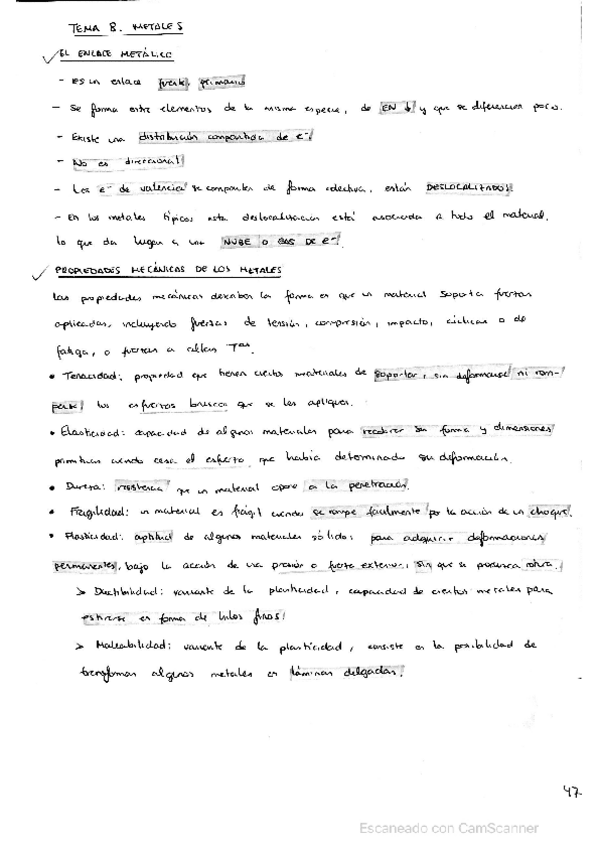 TEMA 8. METALES
EL ENLACE METÁLICO
- Es un enlace fuerte, primario
- Se forma entre elementos de la misma especie, de EN ↓ y que se diferencian poco.
- Existe una distribución compartida de e⁻
- No es direccional
- Los e⁻ de valencia se comparten de forma colectiva, están DESLOCALIZADOS
- En los metales típicos esta deslocalización está asociada a todo el material,
lo que da lugar a una NUBE O GAS DE e⁻
PROPIEDADES MECÁNICAS DE LOS METALES
Las propiedades mecánicas describen la forma en que un material soporta fuerzas
aplicadas, incluyendo fuerzas de tensión, compresión, impacto, cíclicas o de
fatiga, o fuerzas a altas Tas.
• Tenacidad: propiedad que tienen ciertos materiales de soportar, sin deformarse ni rom-
perse los esfuerzos bruscos que se les apliquen.
• Elasticidad: capacidad de algunos materiales para recobrar su forma y dimensiones
primitivas cuando cesa el esfuerzo que había determinado su deformación.
• Dureza: resistencia que un material opone a la penetración.
• Fragilidad: un material es frágil cuando se rompe facilmente por la acción de un choque.
• Plasticidad: aptitud de algunos materiales sólidos para adquirir deformaciones
permanentes, bajo la acción de una presión o fuerza exterior, sin que se produzca rotura.
> Ductibilidad: variante de la plasticidad, capacidad de ciertos metales para
estirarse en forma de hilos finos
> Maleabilidad: variante de la plasticidad, consiste en la posibilidad de
transformar algunos metales en láminas delgadas.
47
Escaneado con CamScanner